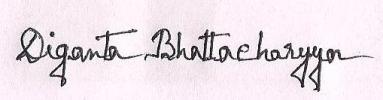 Diganta Bhattacharyya